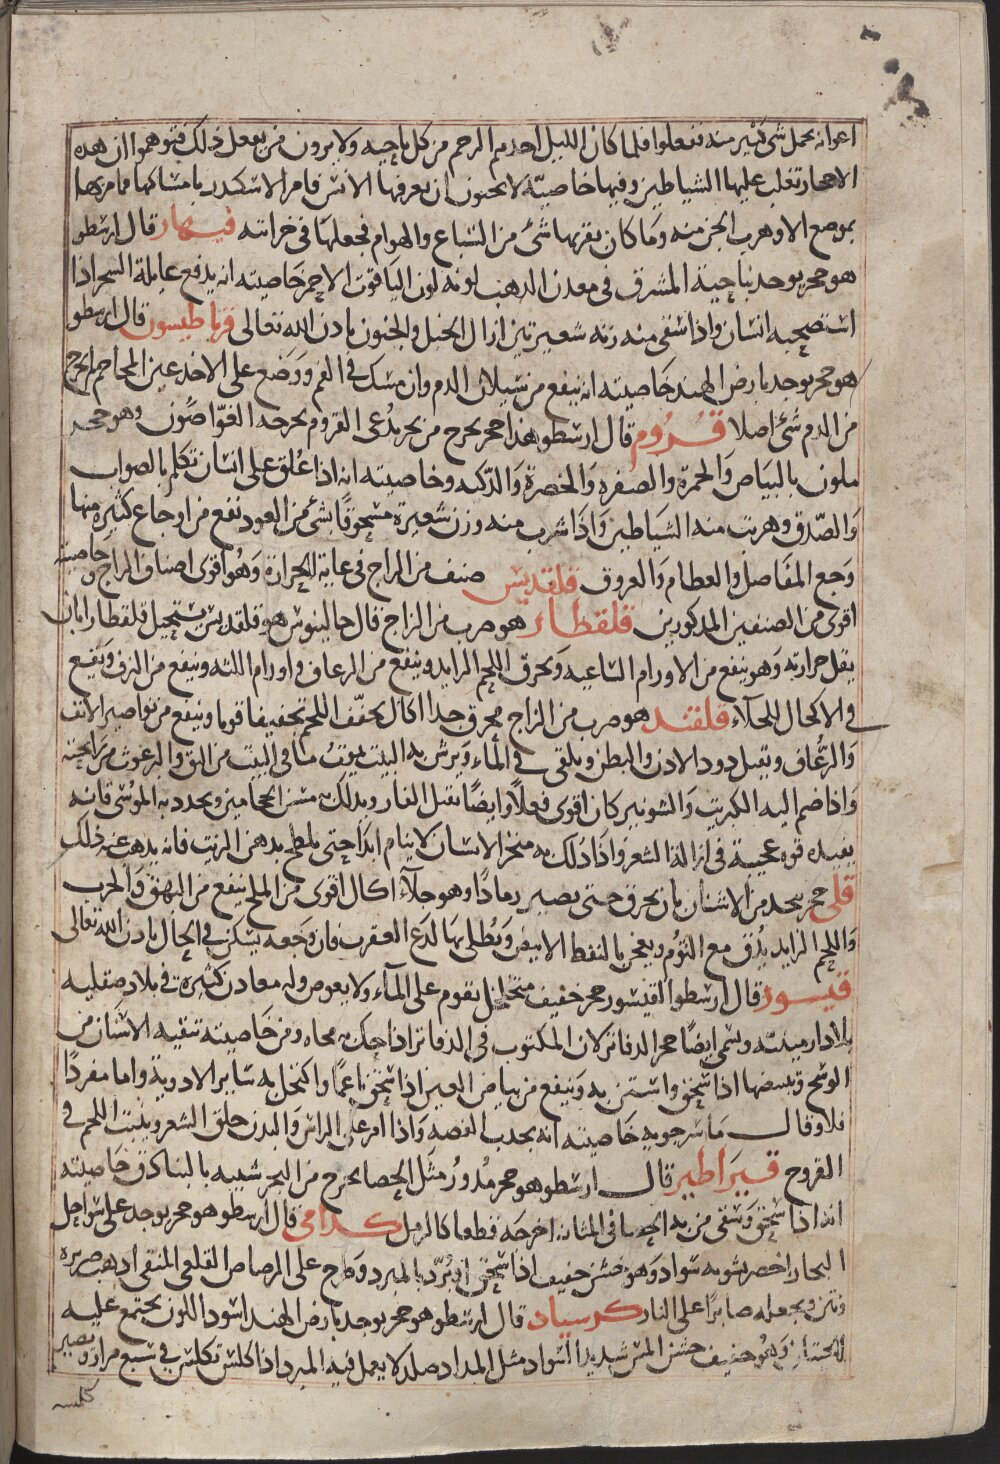 اعوانه بحمل شئ كثير منه ففعلوا فلما كان الليل اخذهم الرجم من كل ناحيه ولا يرون من يفعل ذلك فتوهموا ان هذه
الاحجار تغلب عليها الشياطين وفيها خاصيّة لا يحبون ان يعرفها الانس فامر الاسكندر بامساكها فامر بها
بموضع الا وهرب الجن منه وما كان يقربها شئ من السّباع والهوام فجعلها في خزانته فيهار قال ارسطو
هو حجر يوجد بناحية المشرق في معدن الذهب لونه لون الياقوت الاحمر خاصيته انه يدفع غايلة السحر اذا
استصحبه انسان واذا سقى منه زنه شعيرتين ازال الخبل والجنون باذن الله تعالى قرباطيسون قال ارسطو
هو حجر يوجد بارض الهند خاصيته انه ينفع من سيلان الدم وان مسك في الفم ووضع على الاخدعين المحاجم لم يخرج
من الدم شئ اصلا قروم قال ارسطو هذا حجر يخرج من بحر يدعى القروم يخرجه الغوّاصون وهو حجر
ملون بالبياض والحمرة والصفره والخضرة والدكنه وخاصيته انه اذا علق على انسان تكلم بالصواب
والصّدق وهربت منه الشياطين واذا شرب منه وزن شعيرة مسحوقا بشئ من العود نفع من اوجاع كثيرة منها
وجع المفاصل والعظام والعروق قلقديس صنف من الزاج في غاية الحرارة وهو اقوى اصناف الزاج وخاصيته
اقوى من الصنفين المذكورين قلقطار هو ضرب من الزاج قال جالينوس هو قلقديس يستحيل قلقطار ابان
يقل حرارته وهو ينفع من الاورام الساعيه ويحرق اللحم الزايد وينفع من الرعاف واورام اللثه وينفع من النزف ويقع
في الاكحال الجلاء قلقند هو ضرب من الزاج محرق جدا اكال يجفف اللحم تجفيفا قويا وينفع من نواصير الانف
والرعاف ويقتل دود الاذن والبطن ويلقى في الماء ويرش به البيت يموت ما في البيت من البق والبرغوث من رايحته
واذا ضم اليه الكبريت والشونيز كان اقوى فعلا وايضا يقتل الفار ويدلك به مسن الحجامين ويحدد به الموسى فانه
يفيده قوه عجيبة في ازالة الشعر واذا دلك به منخر الانسان لا ينام ابدا حتى يلطخ بدهن الزيت فانه يذهب عنه ذلك
قلى حجر يتخذ من الاشنان بان يحرق حتى يصير رمادا وهو جلاء اكال اقوى من الملح ينفع من البهق والجرب
واللحم الزايد يدق مع الثوم ويعجن بالنفط الابيض ويطلى بها لدغ العقرب فان وجعه يسكن في الحال باذن الله تعالى
قيسور قال ارسطو القيسور حجر خفيف متخلخل يقوم على الماء ولا يغوص وله معادن كثيرة في بلاد صقليه
بلاد ارمينيه وسمى ايضا حجر الدفاتر لان المكتوب في الدفاتر اذا حك به محاه ومن خاصيته تنقيه الاسنان من
الوسخ وتبيضها اذا سحق واستن به وينفع من بياض العين اذا سحق ناعما واكتحل به ساير الادوية واما مفردا
فلا وقال ماسرجويه خاصيته انه يجذب الفضه واذا امر على الراس والبدن حلق الشعر وينبت اللحم في
القروح قيراطير قال ارسطو هو حجر مدور مثل الحصا يخرج من البحر شبيه بالبنادق خاصيته
انه اذا سحق وسقى من به الحصا في المثانه اخرجه قطعا كالرمل كدامى قال ارسطو هو حجر يوجد على سواحل
البحار اخضر يشوبه سواد وهو خشن خفيف اذا سحق او برد بالمبرد وطرح على الرصاص القلعى المنقى اذهب صريره
ونتنه وجعله صابرا على النار كرسيان قال ارسطو هو حجر يوجد بارض الهند اسود اللون يجتمع عليه
وهو خفيف خشن المس شديد السواد مثل المداد صلد لا يعمل فيه المبرد اذا كلس تكلس في سبع مرار ويصير
كلسه